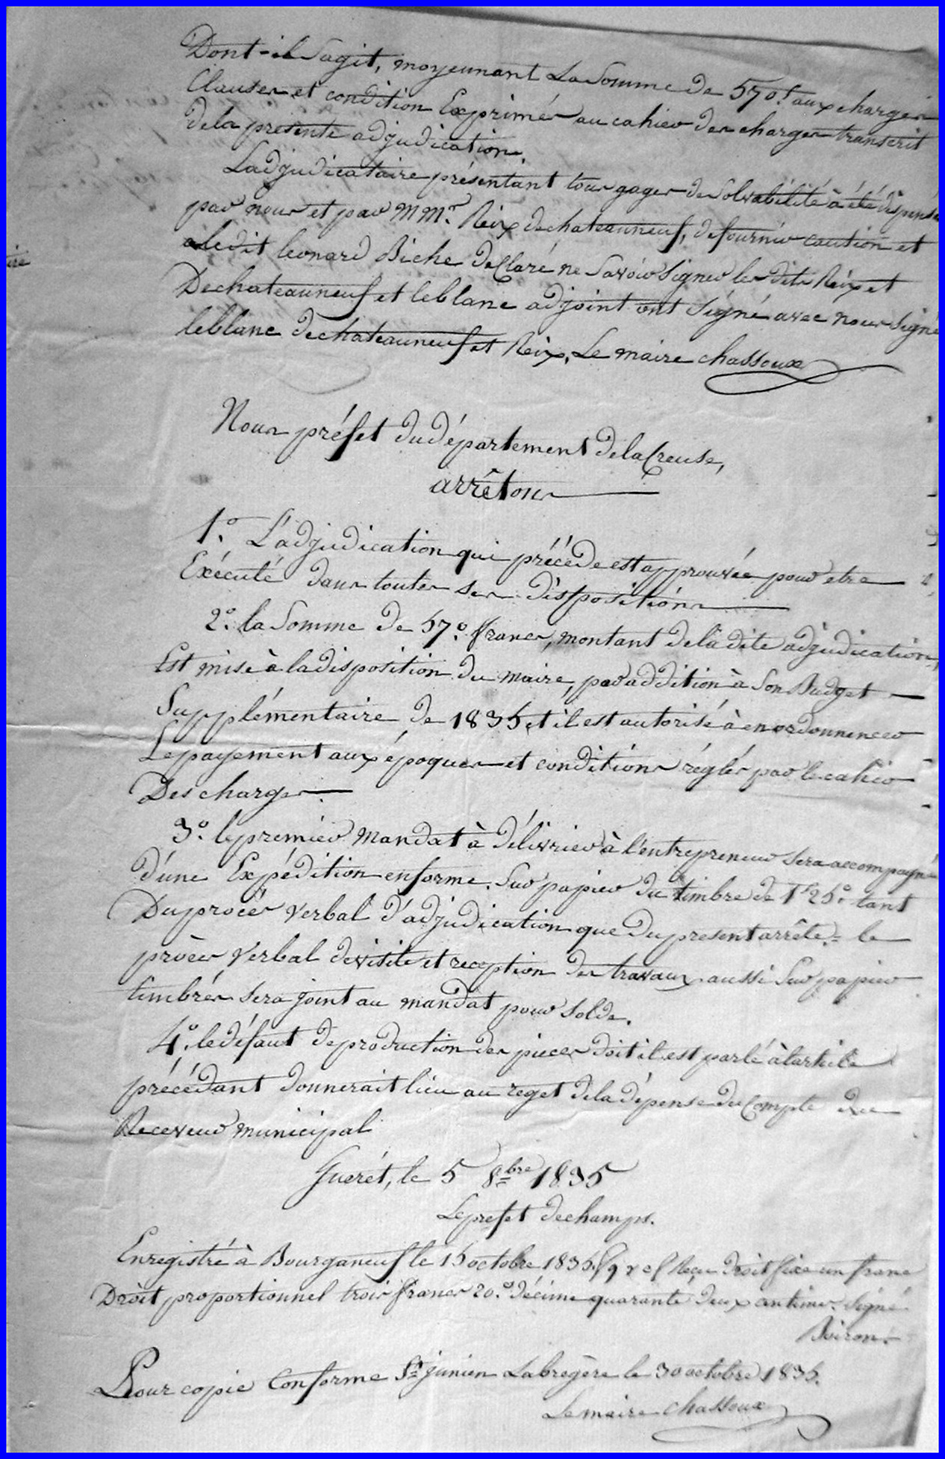 Dont-il Sagit, moyennant La Somme de 570f. aux charges
Clauses et condition Exprimés au cahier des charges transcrit
dela presente adjudication.
Ladjudicataire présentant tous gages de Solvabilité à été dispensé
par nous et par MM.rs Reix dechateauneuf, de fournir caution et
ledit leonard Biche déClaré ne Savoir Signer les dits Reix et
Dechateauneuf et leblanc adjoint ont Signé avec nous Signé
leblanc dechateauneuf et Reix. Le maire chassoux
Nous préfet du département dela Creuse,
arrêtons
1.° L'adjudication qui précède est approuvée pour etre
Exécuté dans toutes ses dispositions
2.° la Somme de 570 francs, montant dela dite adjudication,
Est mise à la disposition du maire, par addition à Son Budget
Supplémentaire de 1835, et il est autorisé à en ordonnencer
Le payement aux époques et conditions réglés par le cahier
Des charges.
3.° le premier mandat à délivrier à l'entrepreneur sera accompagné
d'une Expédition en forme. Sur papier du timbre de 1f 25c tant
Du procès verbal d'adjudication que du present arrêté.= le
procès verbal devisite et reception des travaux aussi Sur papier
timbrés sera joint au mandat pour solde.
4.° le défaut de production des pieces doit il est parlé à larticle
précédant donnerait lieu au reget dela dépense du Compte du
Receveur municipal
Guéret, le 5 8bre 1835
Le prefet dechamps.
Enregistré à Bourganeuf le 15 octobre 1835 Reçu droit fixe un franc
Droit proportionnel trois francs 20.c décime quarante deux centimes. Signé
Boiron.
Pour copie Conforme St junien Labregère le 30 octobre 1835.
Le maire chassoux